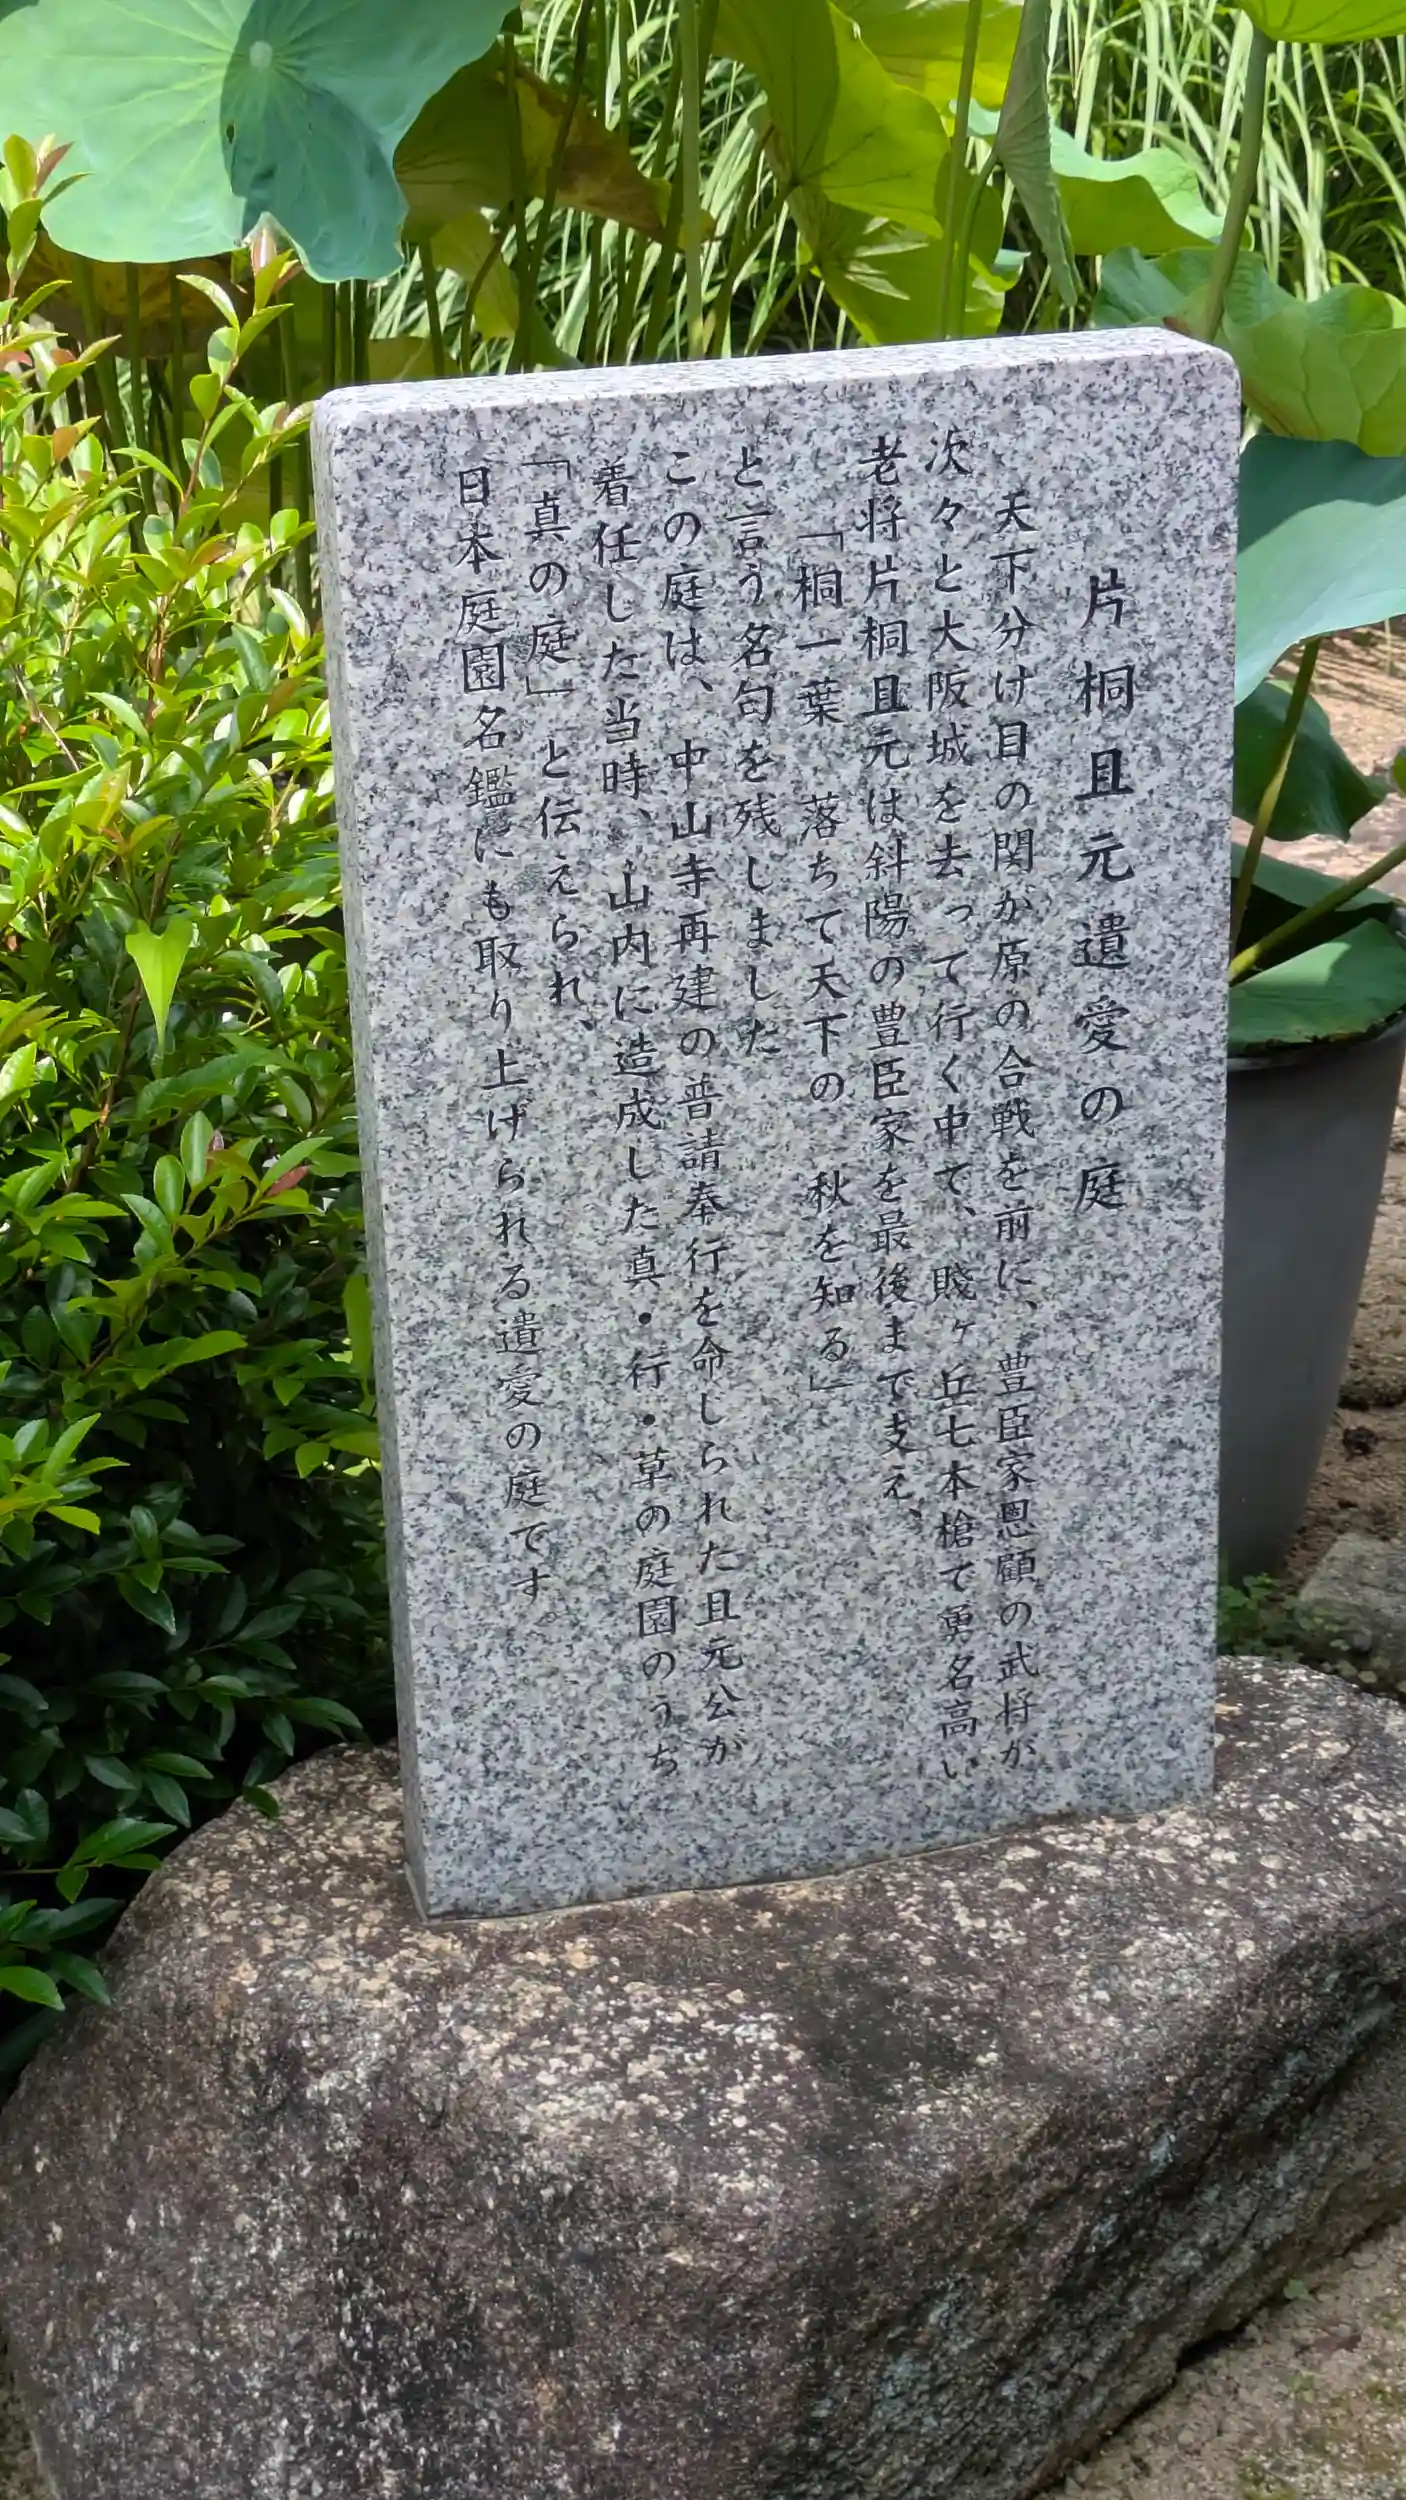 片桐且元遺愛の庭
天下分け目の関か原の合戦を前に、豊臣家恩顧の武将が
次々と大阪城を去って行く中で、賤ヶ丘七本槍で勇名高い
老将片桐且元は斜陽の豊臣家を最後まで支え、
「桐一葉 落ちて天下の 秋を知る」
と言う名句を残しました
この庭は、中山寺再建の普請奉行を命じられた且元公が
着任した当時、山内に造成した真・行・草の庭園のうち
「真の庭」と伝えられ、
日本庭園名鑑にも取り上げられる遺愛の庭です。